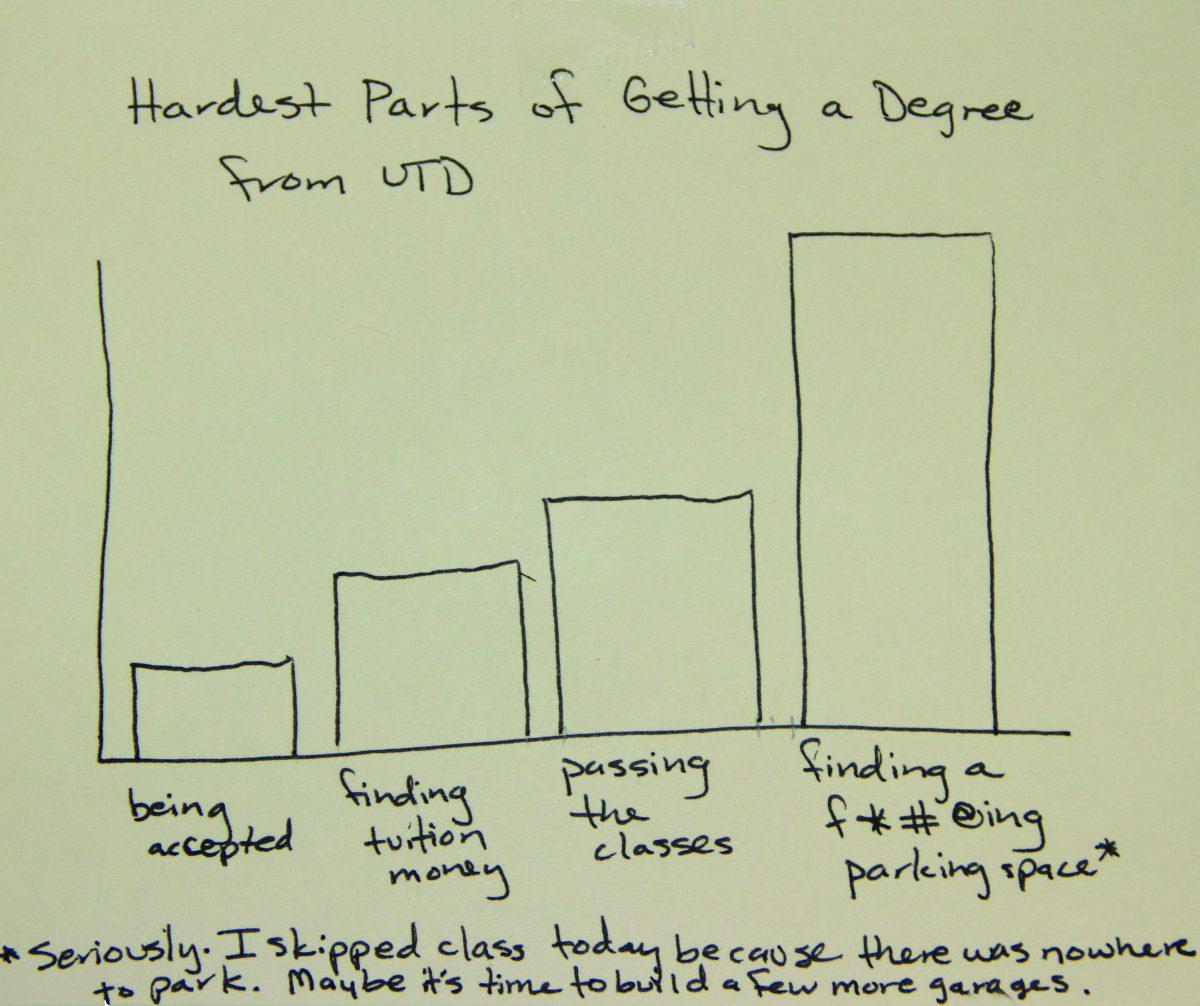 Hardest Parts of Getting a Degree
from UTD
being
accepted
finding
tuition
money
passing
the
classes
finding a
f*#@ing
parking space*
*Seriously. I skipped class today because there was nowhere
to park. Maybe it's time to build a few more garages.